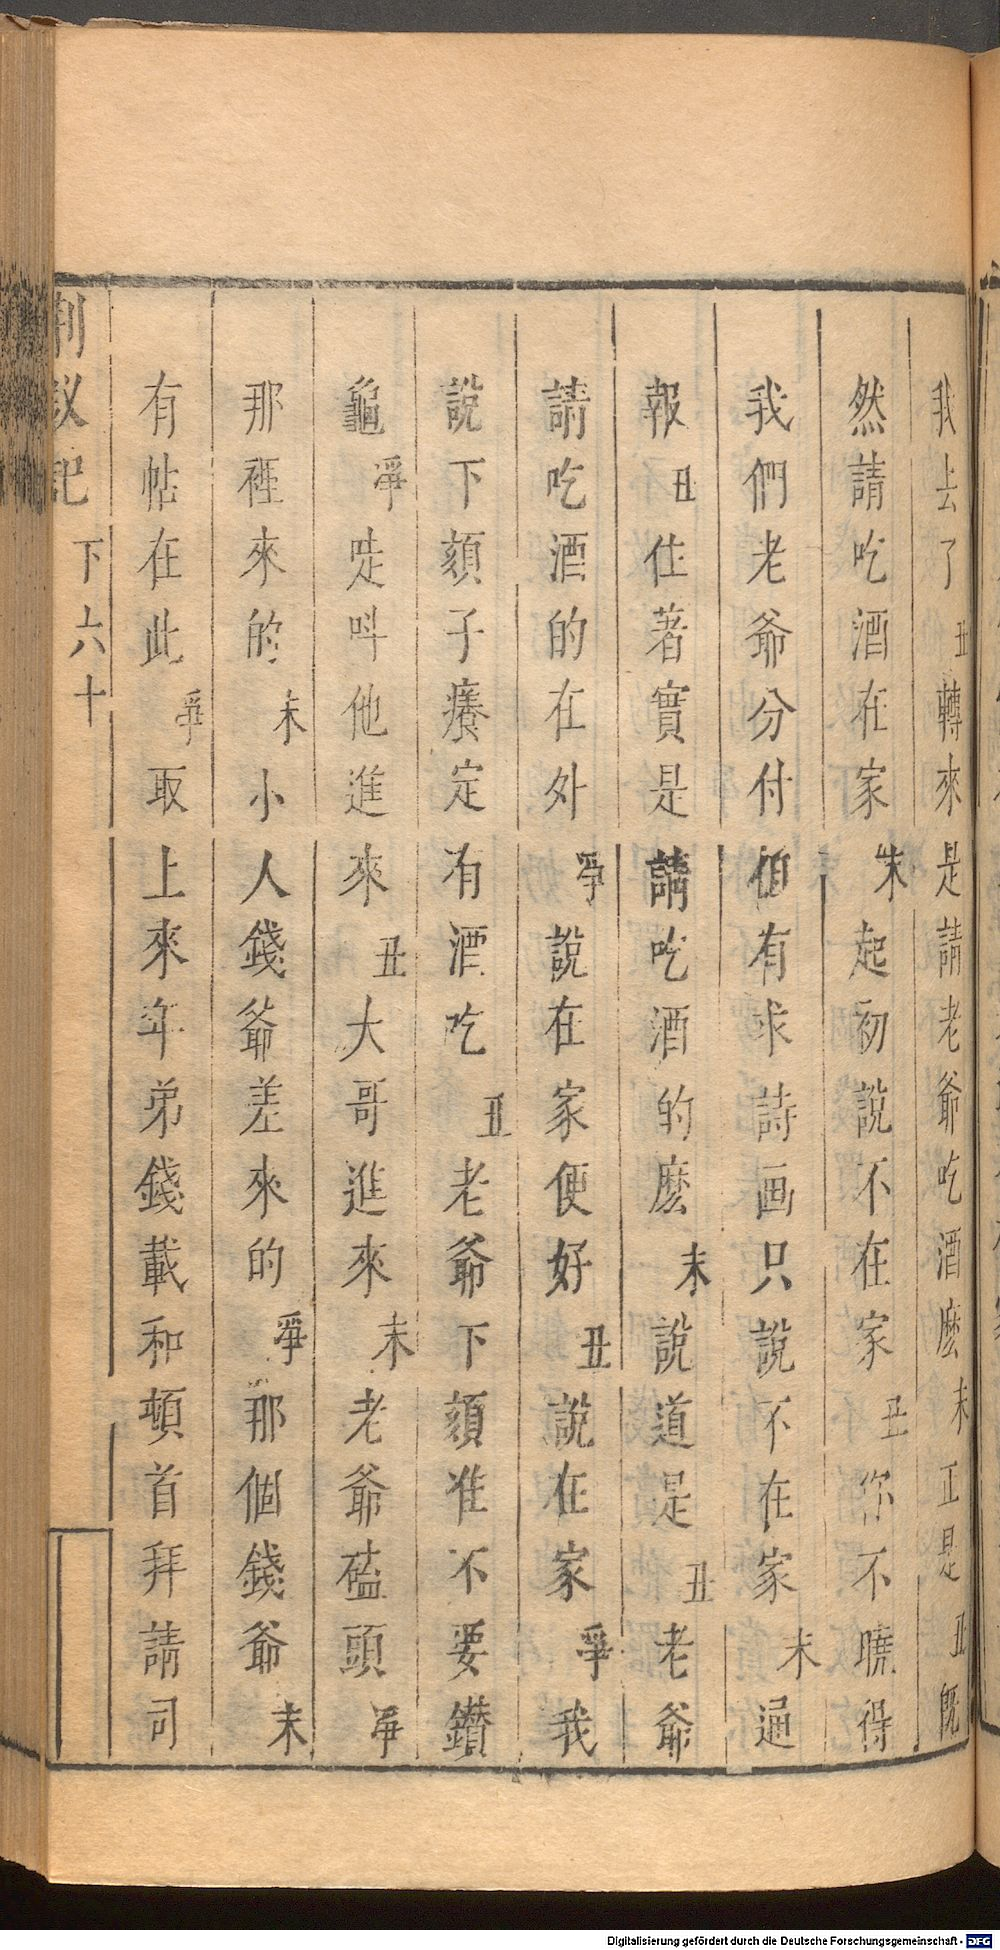 我去了丑轉來是請老爺吃酒麽末正是丑旣
然請吃酒在家末起初說不在家丑你不曉得
我們老爺分付但有求詩画只說不在家末通
報丑住著實是請吃酒的麽末說道是丑老爺
請吃酒的在外爭說在家便好丑說在家爭我
說下頦子癢定有酒吃丑老爺下頦准不要鑽
龜爭唗呌他進來丑大哥進來末老爺磕頭爭
那裡來的末小人錢爺差來的爭那個錢爺末
有帖在此爭取上來年弟錢載和頓首拜請司
荆釵記 下 六十
Digitalisierung gefördert durch die Deutsche Forschungsgemeinschaft - DFG